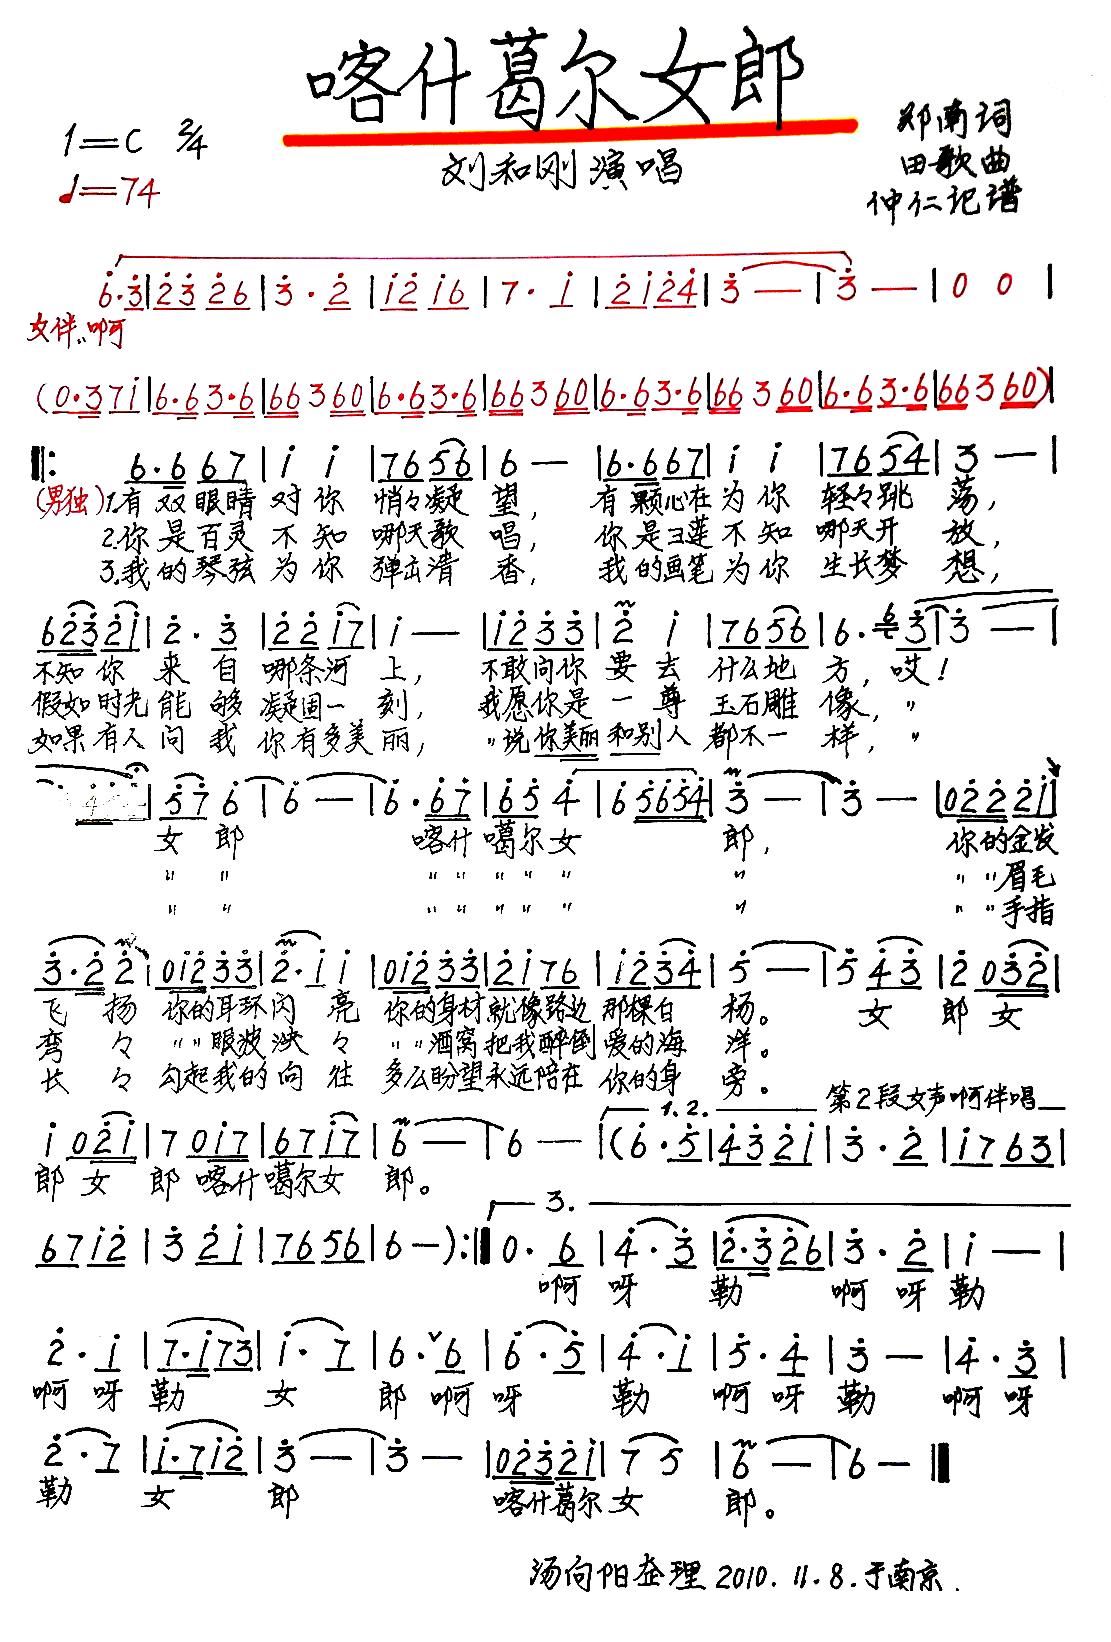 喀什葛尔女郎
1=C 2/4
♩=74
刘和刚演唱
郑南词
田歌曲
仲仁记谱
6·3|23 26|3·2|12 16|7·1|21 24|3 —|3 —|0 0|
女伴..啊
(0·371|6·63·6|66 3 60|6·63·6|66 3 60|6·63·6|66 3 60|6·63·6|66 3 60)|
‖: 6·6 67|1 1|76 56|6 —|6·6 67|1 1|76 54|3 —|
(男独)1.有双眼睛对你悄々凝望，有颗心在为你轻々跳荡，
2.你是百灵不知哪天歌唱，你是彐莲不知哪天开放，
3.我的琴弦为你弹击清香，我的画笔为你生长梦想，
623 21|2·3|22 17|1 —|12 33|2 1|76 56|6· 3|3 —|
不知你来自哪条河上，不敢问你要去什么地方，哎！
假如时光能够凝固一刻，我愿你是一尊玉石雕像，〃
如果有人问我你有多美丽，〃说你美丽和别人都不一样，〃
4|57 6|6 —|6·67|65 4|6 5654|3 —|3 —|02 221|
女郎 喀什葛尔女郎， 你的金发
〃〃 〃〃〃〃〃 〃 〃〃眉毛
〃〃 〃〃〃〃〃 〃 〃〃手指
3·2 2|012 33|2·1 1|012 33|21 76|12 34|5 —|5 43|2 032|
飞扬 你的耳环闪亮 你的身材就像路边那棵白杨。 女郎女
弯々 〃〃眼波泱々 〃〃酒窝把我醉倒爱的海洋。
长々 勾起我的向往 多么盼望永远陪在你的身旁。
1.2. 第2段女声啊伴唱
1 021|7 017|67 17|6 —|6 —|(6·5|43 21|3·2|17 63|
郎女郎喀什葛尔女郎。
3.
67 12|3 21|76 56|6 —):‖0·6|4·3|2·3 26|3·2|1 —|
啊呀勒啊呀勒
2·1|7·1 73|1·7|6·ˇ6|6·5|4·1|5·4|3 —|4·3|
啊呀勒女郎啊呀勒啊呀勒啊呀
2·7|1·7 12|3 —|3 —|023 21|7 5|6 —|6 —‖
勒女郎 喀什葛尔女郎。
汤向阳杢理2010.11.8.于南京.